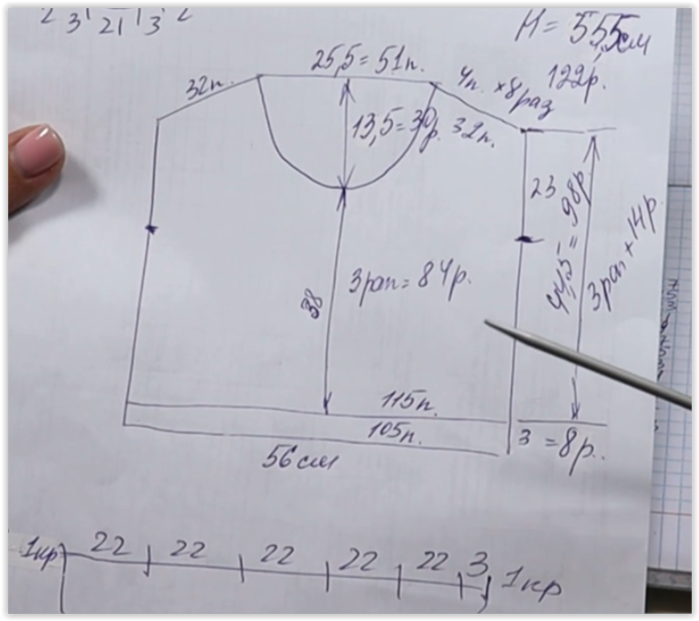 2 3 | 21 | 3 2
H = 55,5см
122р.
25,5 = 51п.
32п.
4п. × 8раз
13,5 = 30р.
32п.
23
44,5 = 98р.
3рап + 14р
38
3рап = 84р.
115п.
105п.
3 = 8р.
56см
1кр 22 22 22 22 22 3 1кр